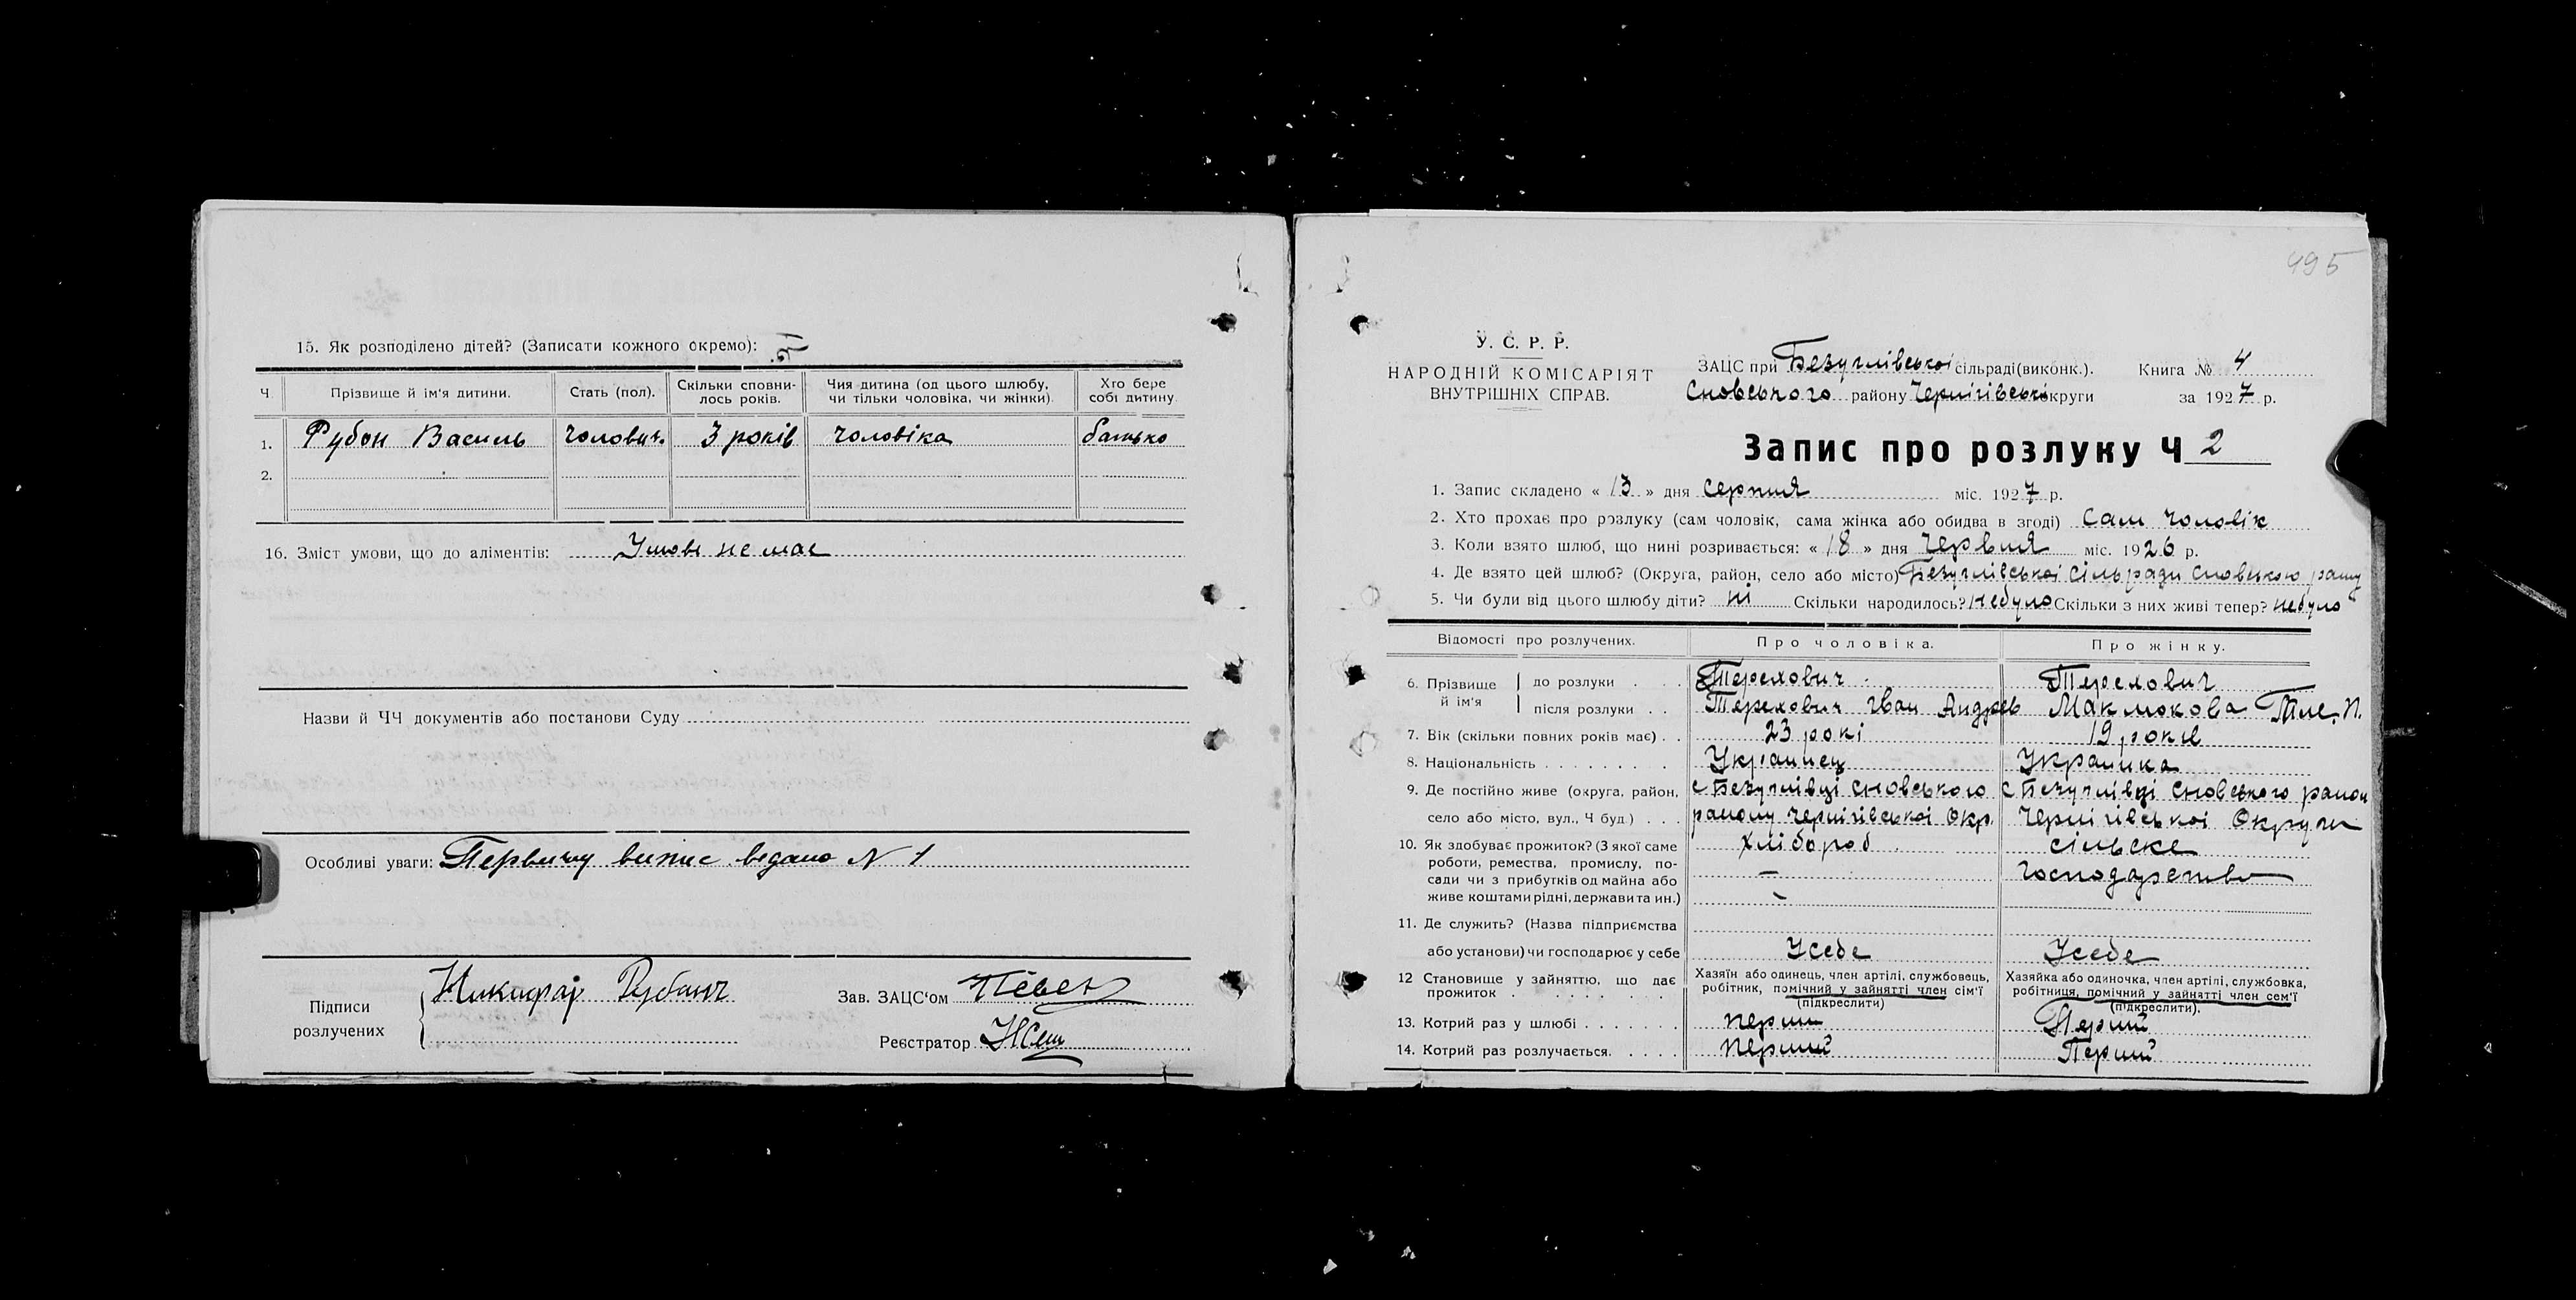 15. Як розподілено дітей? (Записати кожного окремо):
Ч Прізвище й ім'я дитини. Стать (пол). Скільки сповнилось років. Чия дитина (од цього шлюбу, чи тільки чоловіка, чи жінки). Хто бере собі дитину
1. Рубон Василь чоловіч. 3 років чоловіка батько
2.
16. Зміст умови, що до аліментів: Умові не має
Назви й ЧЧ документів або постанови Суду
Особливі уваги: Первичну випис видано N 1
Підписи розлучених
Никифар Рубанч
Зав. ЗАЦС'ом Певен
Реєстратор
495
У. С. Р. Р.
НАРОДНІЙ КОМІСАРІЯТ
ВНУТРІШНІХ СПРАВ.
ЗАЦС при Безуглівської сільраді (виконк.). Книга № 4
Сновського району Чернігівської округи за 1927 р.
Запис про розлуку Ч 2
1. Запис складено « 13 » дня серпня міс. 1927 р.
2. Хто прохає про розлуку (сам чоловік, сама жінка або обидва в згоді) сам чоловік
3. Коли взято шлюб, що нині розривається: « 18 » дня Червня міс. 1926 р.
4. Де взято цей шлюб? (Округа, район, село або місто) Безуглівської сільради Сновського рану
5. Чи були від цього шлюбу діти? ні Скільки народилось? Небуло Скільки з них живі тепер? небуло
Відомості про розлучених. Про чоловіка. Про жінку.
6. Прізвище й ім'я до розлуки . . . Терехович Терехович
після розлуки . . Терехович Іван Андрєв Маклюкова
7. Вік (скільки повних років має) . . 23 рокі 19 рокив
8. Національність . . . . . . . . Украинец Украинка
9. Де постійно живе (округа, район, с Безуглівці Сновського с Безуглівці Сновського раион
село або місто, вул., Ч буд.) . . . раиону Чернігівської Окр. Чернігівської Округи
10. Як здобуває прожиток? (З якої саме хлібороб сільске
роботи, ремества, промислу, по- — господарство
сади чи з прибутків од майна або
живе коштами рідні, держави та ин.) -
11. Де служить? (Назва підприємства
або установи) чи господарює у себе Усебе Усебе
12 Становище у зайняттю, що дає прожиток . . . . . . . Хазяїн або одинець, член артілі, службовець, робітник, помічний у зайнятті член сім'ї (підкреслити) Хазяйка або одиночка, член артілі, службовка, робітниця, помічний у зайнятті член сем'ї (підкреслити).
13. Котрий раз у шлюбі . . . . . . . перший Перший
14. Котрий раз розлучається. . . . . перший Перший